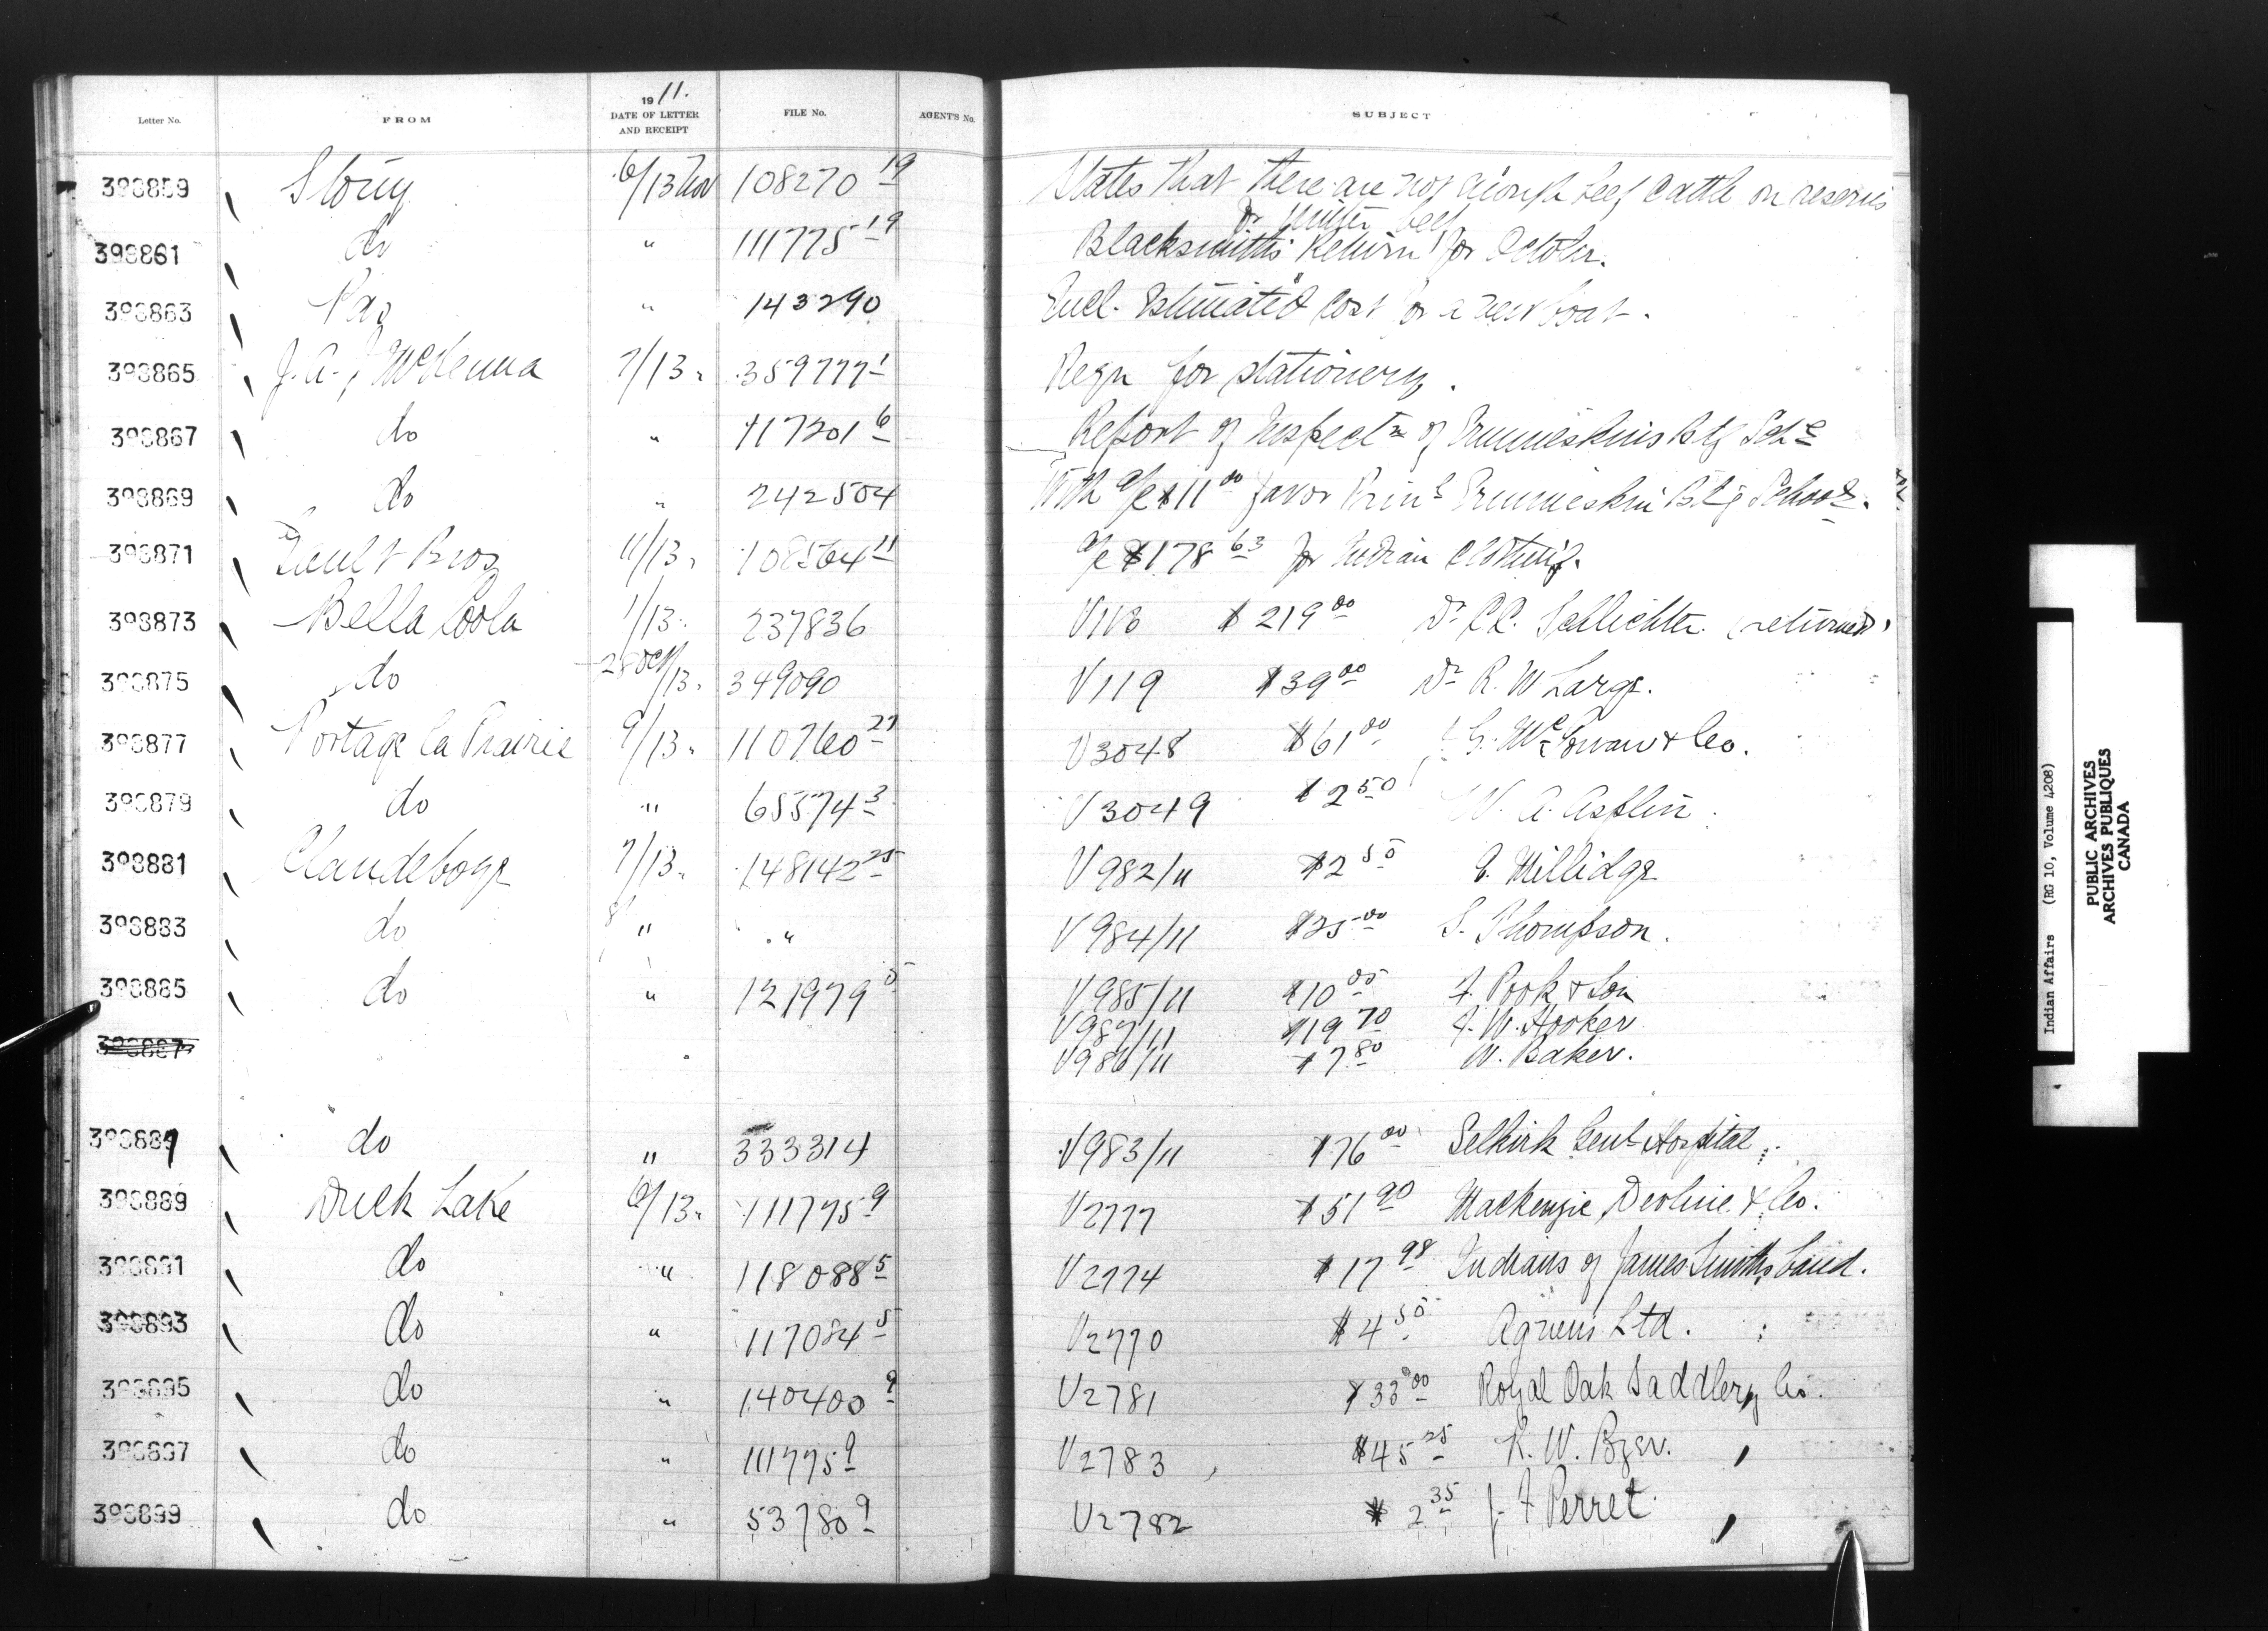 Letter No. FROM 1911. DATE OF LETTER AND RECEIPT FILE No. AGENT'S No. SUBJECT
398859 Stony 6/13 Nov 108270 19 States that there are not enough beef cattle on reserves
for winter beef
398861 do " 111775 19 Blacksmith's Return for October.
398863 Pas " 143290 Encl. Estimated Cost for a new boat.
398865 J. A. J. McKenna 7/13 " 359777 1 Reqn for stationery.
398867 do " 117201 6 Report of Inspectn of Ermineskins Bdg Schl
398869 do " 242504 With a/c $11 00 favor Prinl Ermineskin Bdg School.
398871 Bros 11/13 " 108564 11 a/c $178 63 for Indian Clothing.
398873 Bella Coola 1/13 " 237836 V118 $219 00 Dr Schlichter (returned)
398875 do 28 Oct/13 " 349090 V119 $39 00 Dr R. W. Large.
398877 Portage la Prairie 9/13 " 110760 27 V3048 $61 00 McCowan & Co.
398879 do " 65574 3 V3049 $2 50 W. A. Asplin.
398881 Clandeboye 7/13 " 148142 25 V982/11 $2 50 Millidge
398883 do 8/ " " V984/11 $25 00 S. Thompson.
398885 do " 121979 5 V985/11 $10 05 F. Pook & Son
V987/11 $19 70 F. W. Hooker
398887 V986/11 $7 80 W. Baker.
398887 do " 333314 V983/11 $76 00 Selkirk Genl Hospital
398889 Duck Lake 6/13 " 111775 9 V2777 $51 90 Mackenzie, Devline & Co.
398891 do " 118088 5 V2774 $17 98 Indians of James Smith's band.
398893 do " 117084 5 V2770 $4 50 Agnews Ltd.
398895 do " 140400 9 V2781 $33 00 Royal Oak Saddlery Co.
398897 do " 111775 9 V2783 $45 25 R. W. Byer.
398899 do " 53780 9 V2782 $2 35 J. F. Perret
Indian Affairs (RG 10, Volume 4208)
PUBLIC ARCHIVES
ARCHIVES PUBLIQUES
CANADA